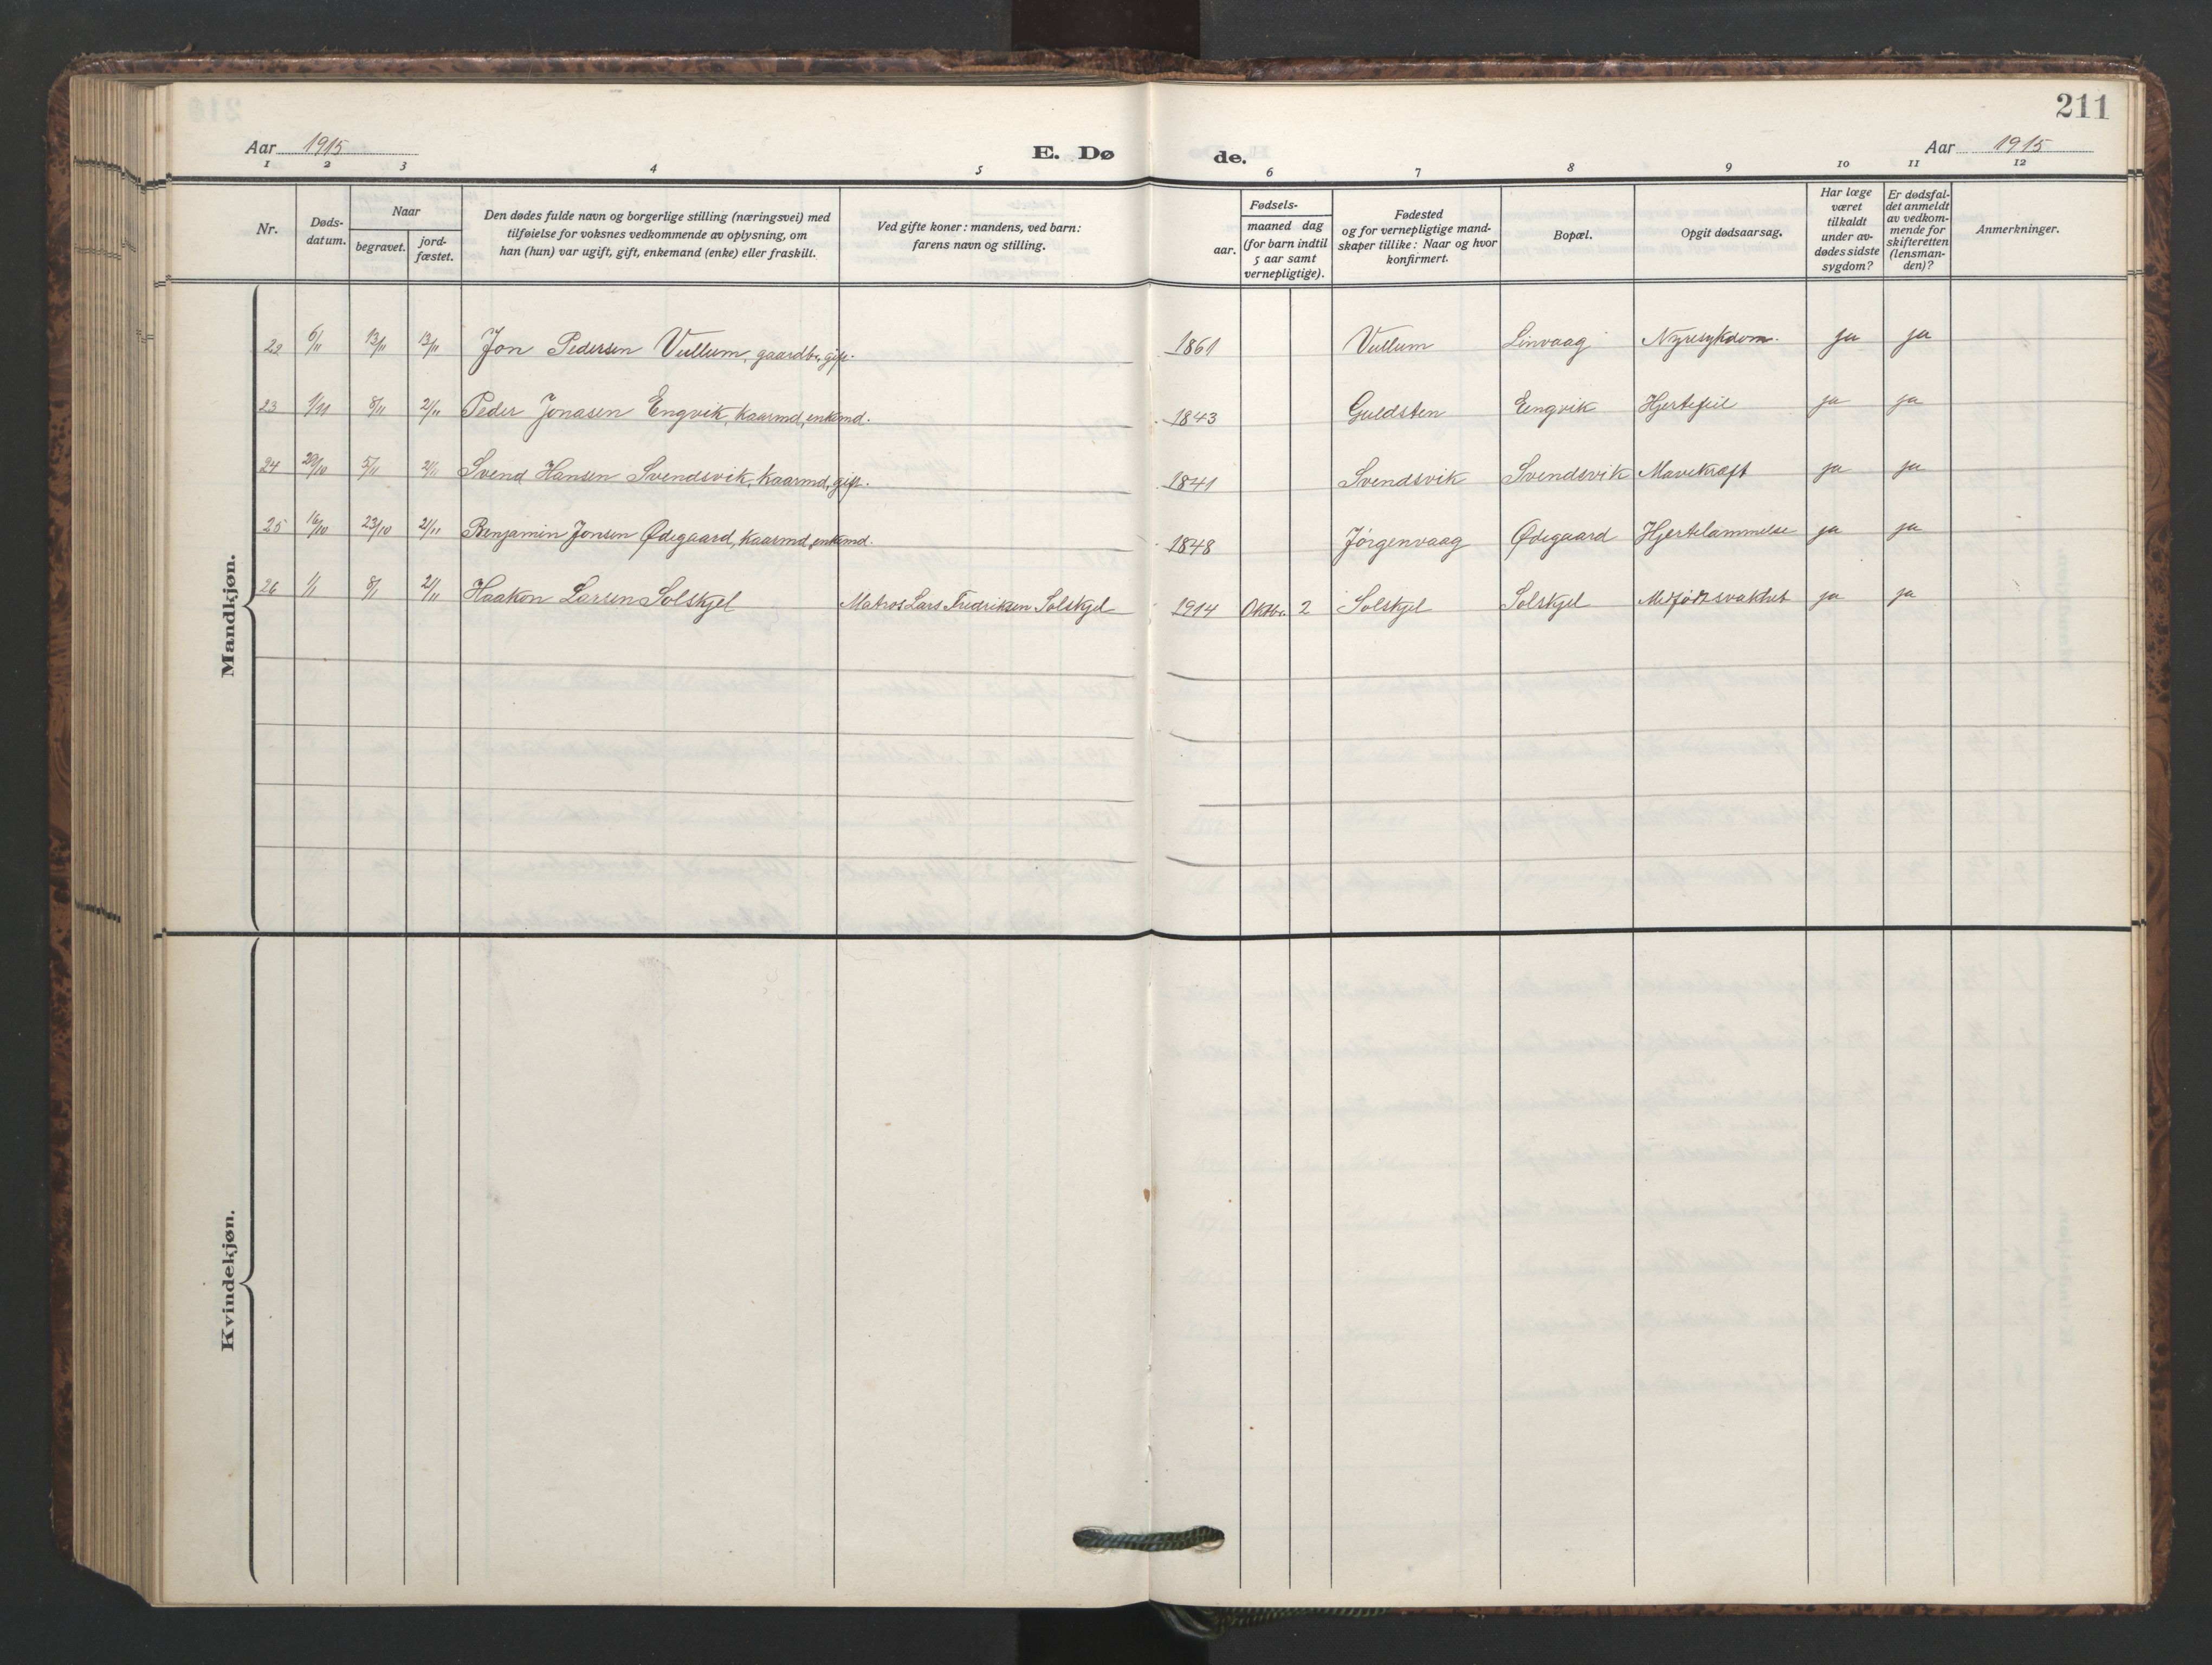 211
Aar 1915
E. Dø
de.
Aar 1915
1 2 3 4 5 6 7 8 9 10 11 12
Nr.
Døds-
datum.
Naar
begravet.
jord-
fæstet.
Den dødes fulde navn og borgerlige stilling (næringsvei) med
tilføielse for voksnes vedkommende av oplysning, om
han (hun) var ugift, gift, enkemand (enke) eller fraskilt.
Ved gifte koner: mandens, ved barn:
farens navn og stilling.
Fødsels-
aar.
maaned dag
(for barn indtil
5 aar samt
vernepligtige).
Fødested
og for vernepligtige mand-
skaper tillike: Naar og hvor
konfirmert.
Bopæl.
Opgit dødsaarsag.
Har læge
været
tilkaldt
under av-
dødes sidste
sygdom?
Er dødsfal-
det anmeldt
av vedkom-
mende for
skifteretten
(lensman-
den)?
Anmerkninger.
Mandkjøn.
22 6/11 13/11 13/11 Jon Pedersen Vullum, gaardbr, gift. 1861 Vullum Linvaag Nyresykdom. ja ja
23 1/11 8/11 21/11 Peder Jonasen Engvik, kaarmd, enkemd. 1843 Guldsten Eengvik Hjertefeil ja ja
24 29/10 5/11 21/11 Svend Hansen Svendsvik, kaarmd, gift. 1841 Svendsvik Svendsvik Mavekræft ja ja
25 16/10 23/10 21/11 Benjamin Jonsen Ødegaard, kaarmd, enkemd. 1848 Jörgenvaag Ødegaard Hjertelammelse ja ja
26 1/1 8/1 21/11 Haakon Larsen Solskjel Matros Lars Fredriksen Solskjel 1914 Oktbr. 2 Solskjel Solskjel Medfödt svakhet ja ja
Kvindekjøn.